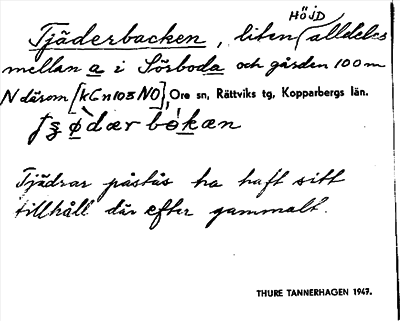 Tjäderbacken, liten HÖJD alldeles
mellan a i Sörboda och gården 100 m
N därom [kGn103NO], Ore sn, Rättviks tg, Kopparbergs län.
Tjädrar påstås ha haft sitt
tillhåll där efter gammalt.
THURE TANNERHAGEN 1947.